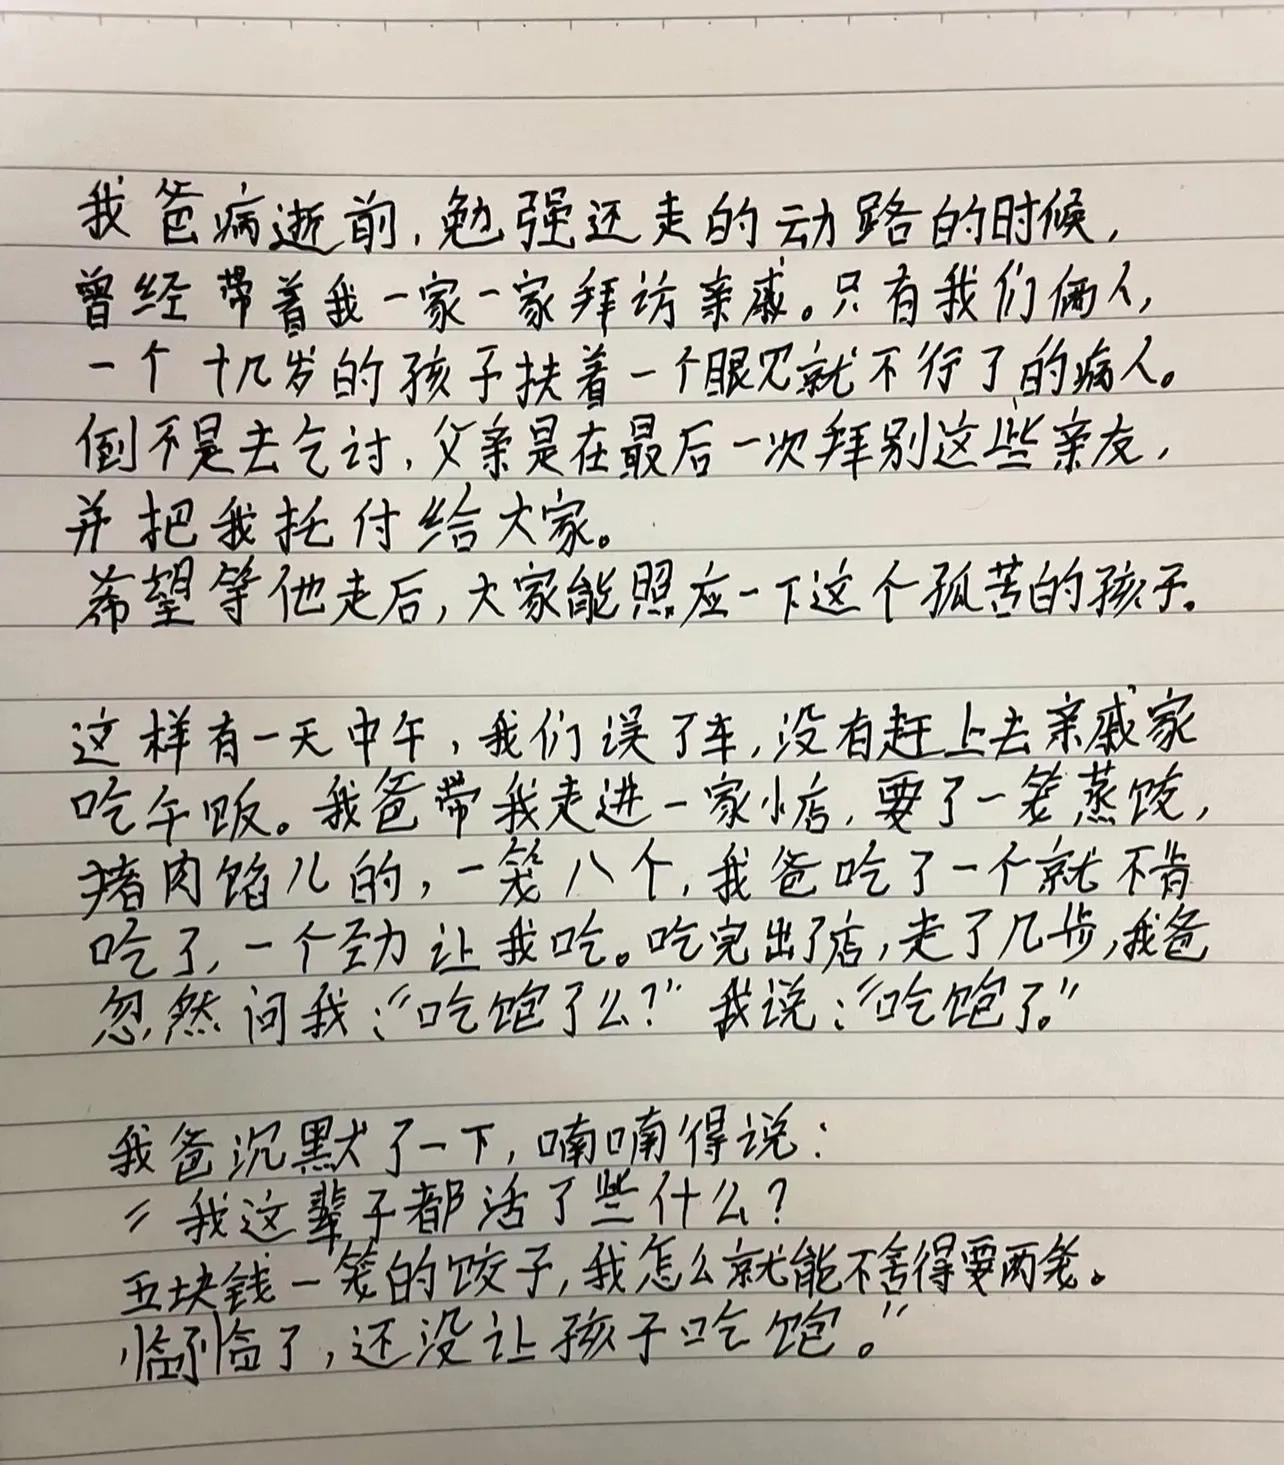 我爸病逝前，勉强还走的动路的时候，
曾经带着我一家一家拜访亲戚。只有我们俩人，
一个十几岁的孩子扶着一个眼见就不行了的病人。
倒不是去乞讨，父亲是在最后一次拜别这些亲友，
并把我托付给大家。
希望等他走后，大家能照应一下这个孤苦的孩子。
这样有一天中午，我们误了车，没有赶上去亲戚家
吃午饭。我爸带我走进一家小店，要了一笼蒸饺，
猪肉馅儿的，一笼八个，我爸吃了一个就不肯
吃了，一个劲让我吃。吃完出了店，走了几步，我爸
忽然问我：“吃饱了么？”我说：“吃饱了。”
我爸沉默了一下，喃喃得说：
“我这辈子都活了些什么？
五块钱一笼的饺子，我怎么就能不舍得要两笼。
临到临了，还没让孩子吃饱。”